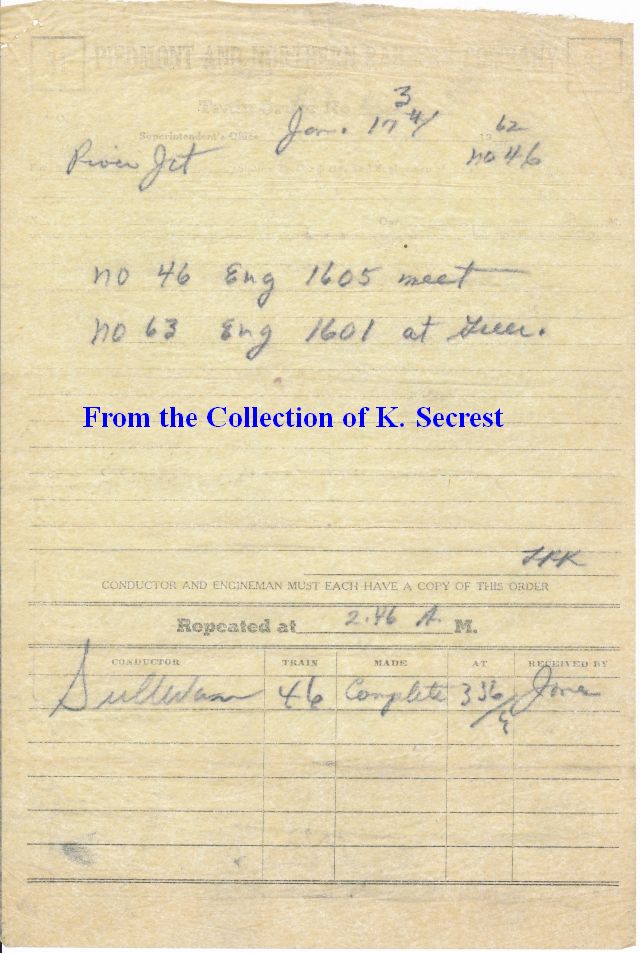 PIEDMONT AND NORTHERN RAILWAY COMPANY
Train Order No. 3
Superintendent's Office Jan. 17th 1962
River Jct no 46
no 46 Eng 1605 meet
no 63 Eng 1601 at Greer.
From the Collection of K. Secrest
CONDUCTOR AND ENGINEMAN MUST EACH HAVE A COPY OF THIS ORDER
Repeated at 2.46 A. M.
CONDUCTOR TRAIN MADE AT RECEIVED BY
46 Complete 336 Jones